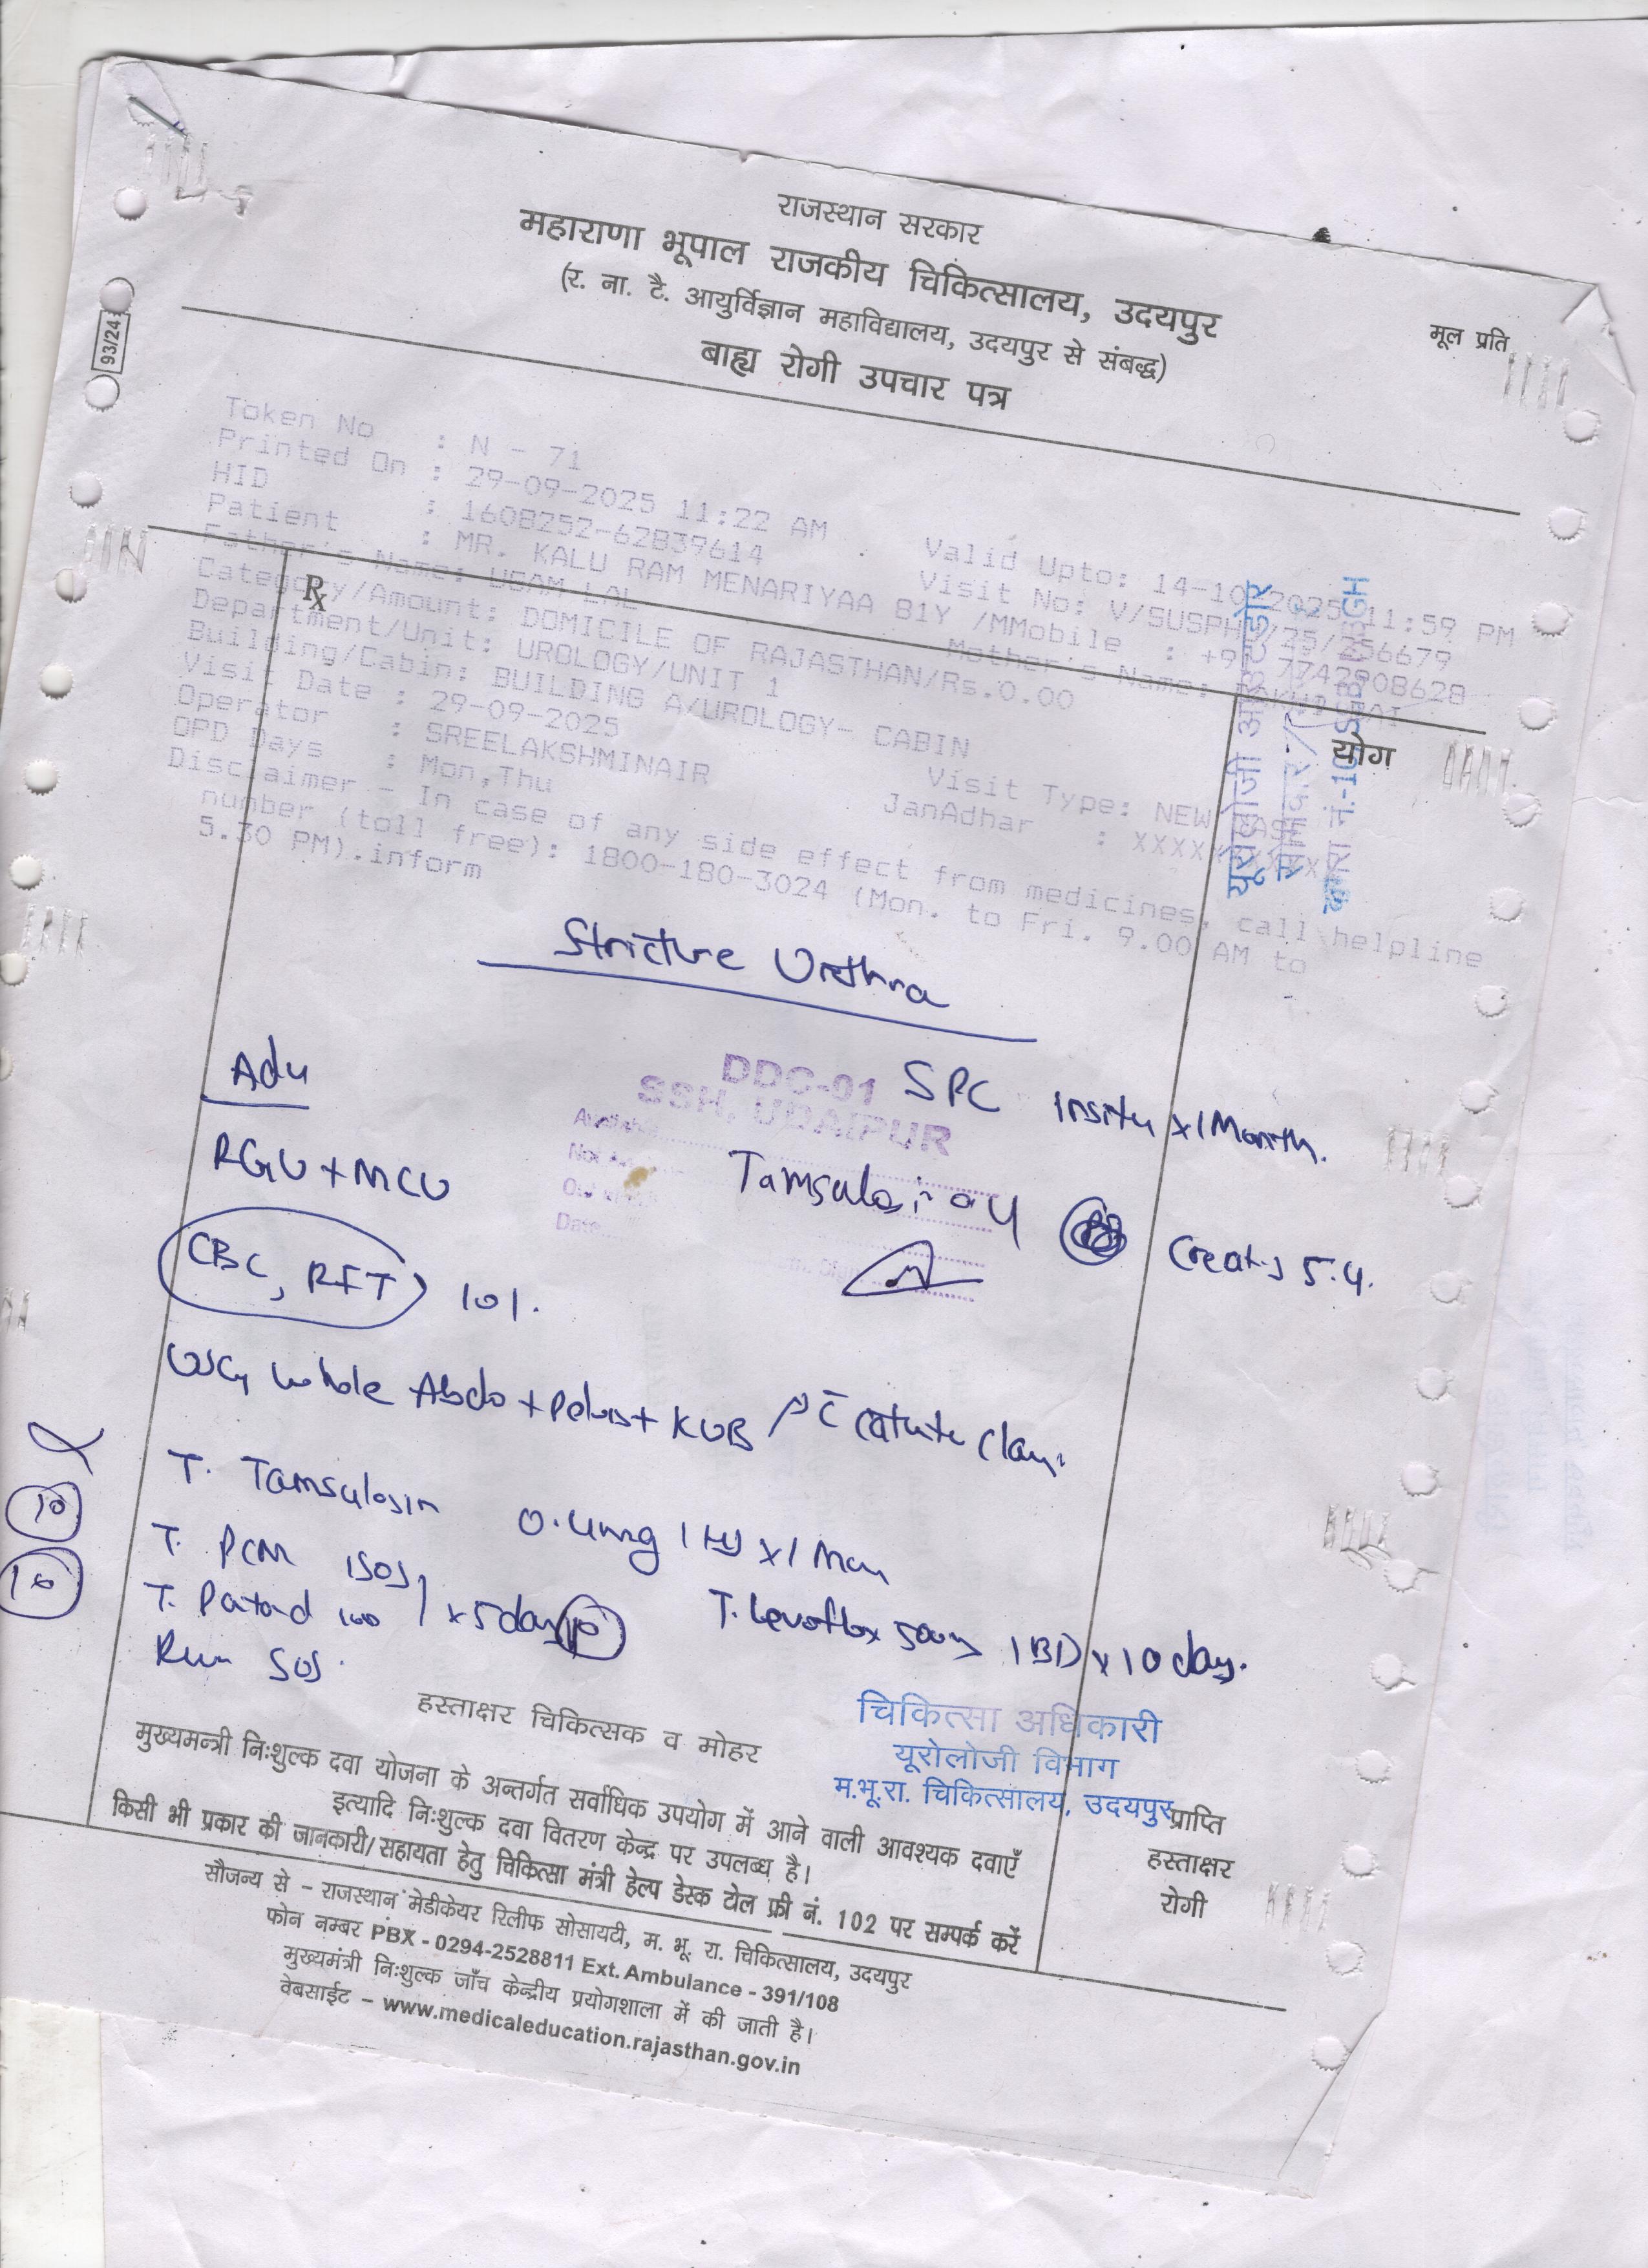 राजस्थान सरकार
महाराणा भूपाल राजकीय चिकित्सालय, उदयपुर
(र. ना. टै. आयुर्विज्ञान महाविद्यालय, उदयपुर से संबद्ध)
मूल प्रति
बाह्य रोगी उपचार पत्र
93/24
Token No : N - 71
Printed On : 29-09-2025 11:22 AM Valid Upto: 14-10-2025 11:59 PM
HID : 1608252-62839614 Visit No: V/SUSPH /25/256679
Patient : MR. KALU RAM MENARIYAA 81Y /M Mobile : +91 7742908628
Father's Name: UGAM LAL Mother's Name:
Category/Amount: DOMICILE OF RAJASTHAN/Rs.0.00
Department/Unit: UROLOGY/UNIT 1
Building/Cabin: BUILDING A/UROLOGY- CABIN
Visit Date : 29-09-2025 Visit Type: NEW CASE
Operator : SREELAKSHMINAIR JanAdhar : XXXX
OPD Days : Mon,Thu
Disclaimer - In case of any side effect from medicines, call helpline
number (toll free): 1800-180-3024 (Mon. to Fri. 9.00 AM to
5.30 PM).inform
Rx
योग
यूरोलोजी आउटडोर
Stricture Urethra
DDC-01
SSH, UDAIPUR
Date
Adv
SPC insitu x 1 Month.
RGU + MCU
Tamsulosin 0.4
CBC, RFT
Creat 5.4.
USG Whole Abdo + Pelvis + KUB
T. Tamsulosin 0.4mg 1 HS x 1
T. PCM 1 SOS
T. 100 x 5 day 10
T. Levoflox 500mg 1 BD x 10 day.
SOS.
10
10
हस्ताक्षर चिकित्सक व मोहर
चिकित्सा अधिकारी
यूरोलोजी विभाग
म.भू.रा. चिकित्सालय, उदयपुर
मुख्यमन्त्री निःशुल्क दवा योजना के अन्तर्गत सर्वाधिक उपयोग में आने वाली आवश्यक दवाएँ
इत्यादि निःशुल्क दवा वितरण केन्द्र पर उपलब्ध है।
किसी भी प्रकार की जानकारी/सहायता हेतु चिकित्सा मंत्री हेल्प डेस्क टोल फ्री नं. 102 पर सम्पर्क करें
प्राप्ति
हस्ताक्षर
रोगी
सौजन्य से – राजस्थान मेडीकेयर रिलीफ सोसायटी, म. भू. रा. चिकित्सालय, उदयपुर
फोन नम्बर PBX - 0294-2528811 Ext. Ambulance - 391/108
मुख्यमंत्री निःशुल्क जाँच केन्द्रीय प्रयोगशाला में की जाती है।
वेबसाईट – www.medicaleducation.rajasthan.gov.in